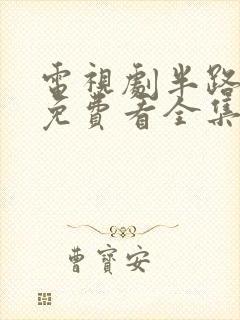 電視劇半路
免費看全集
曹寶安